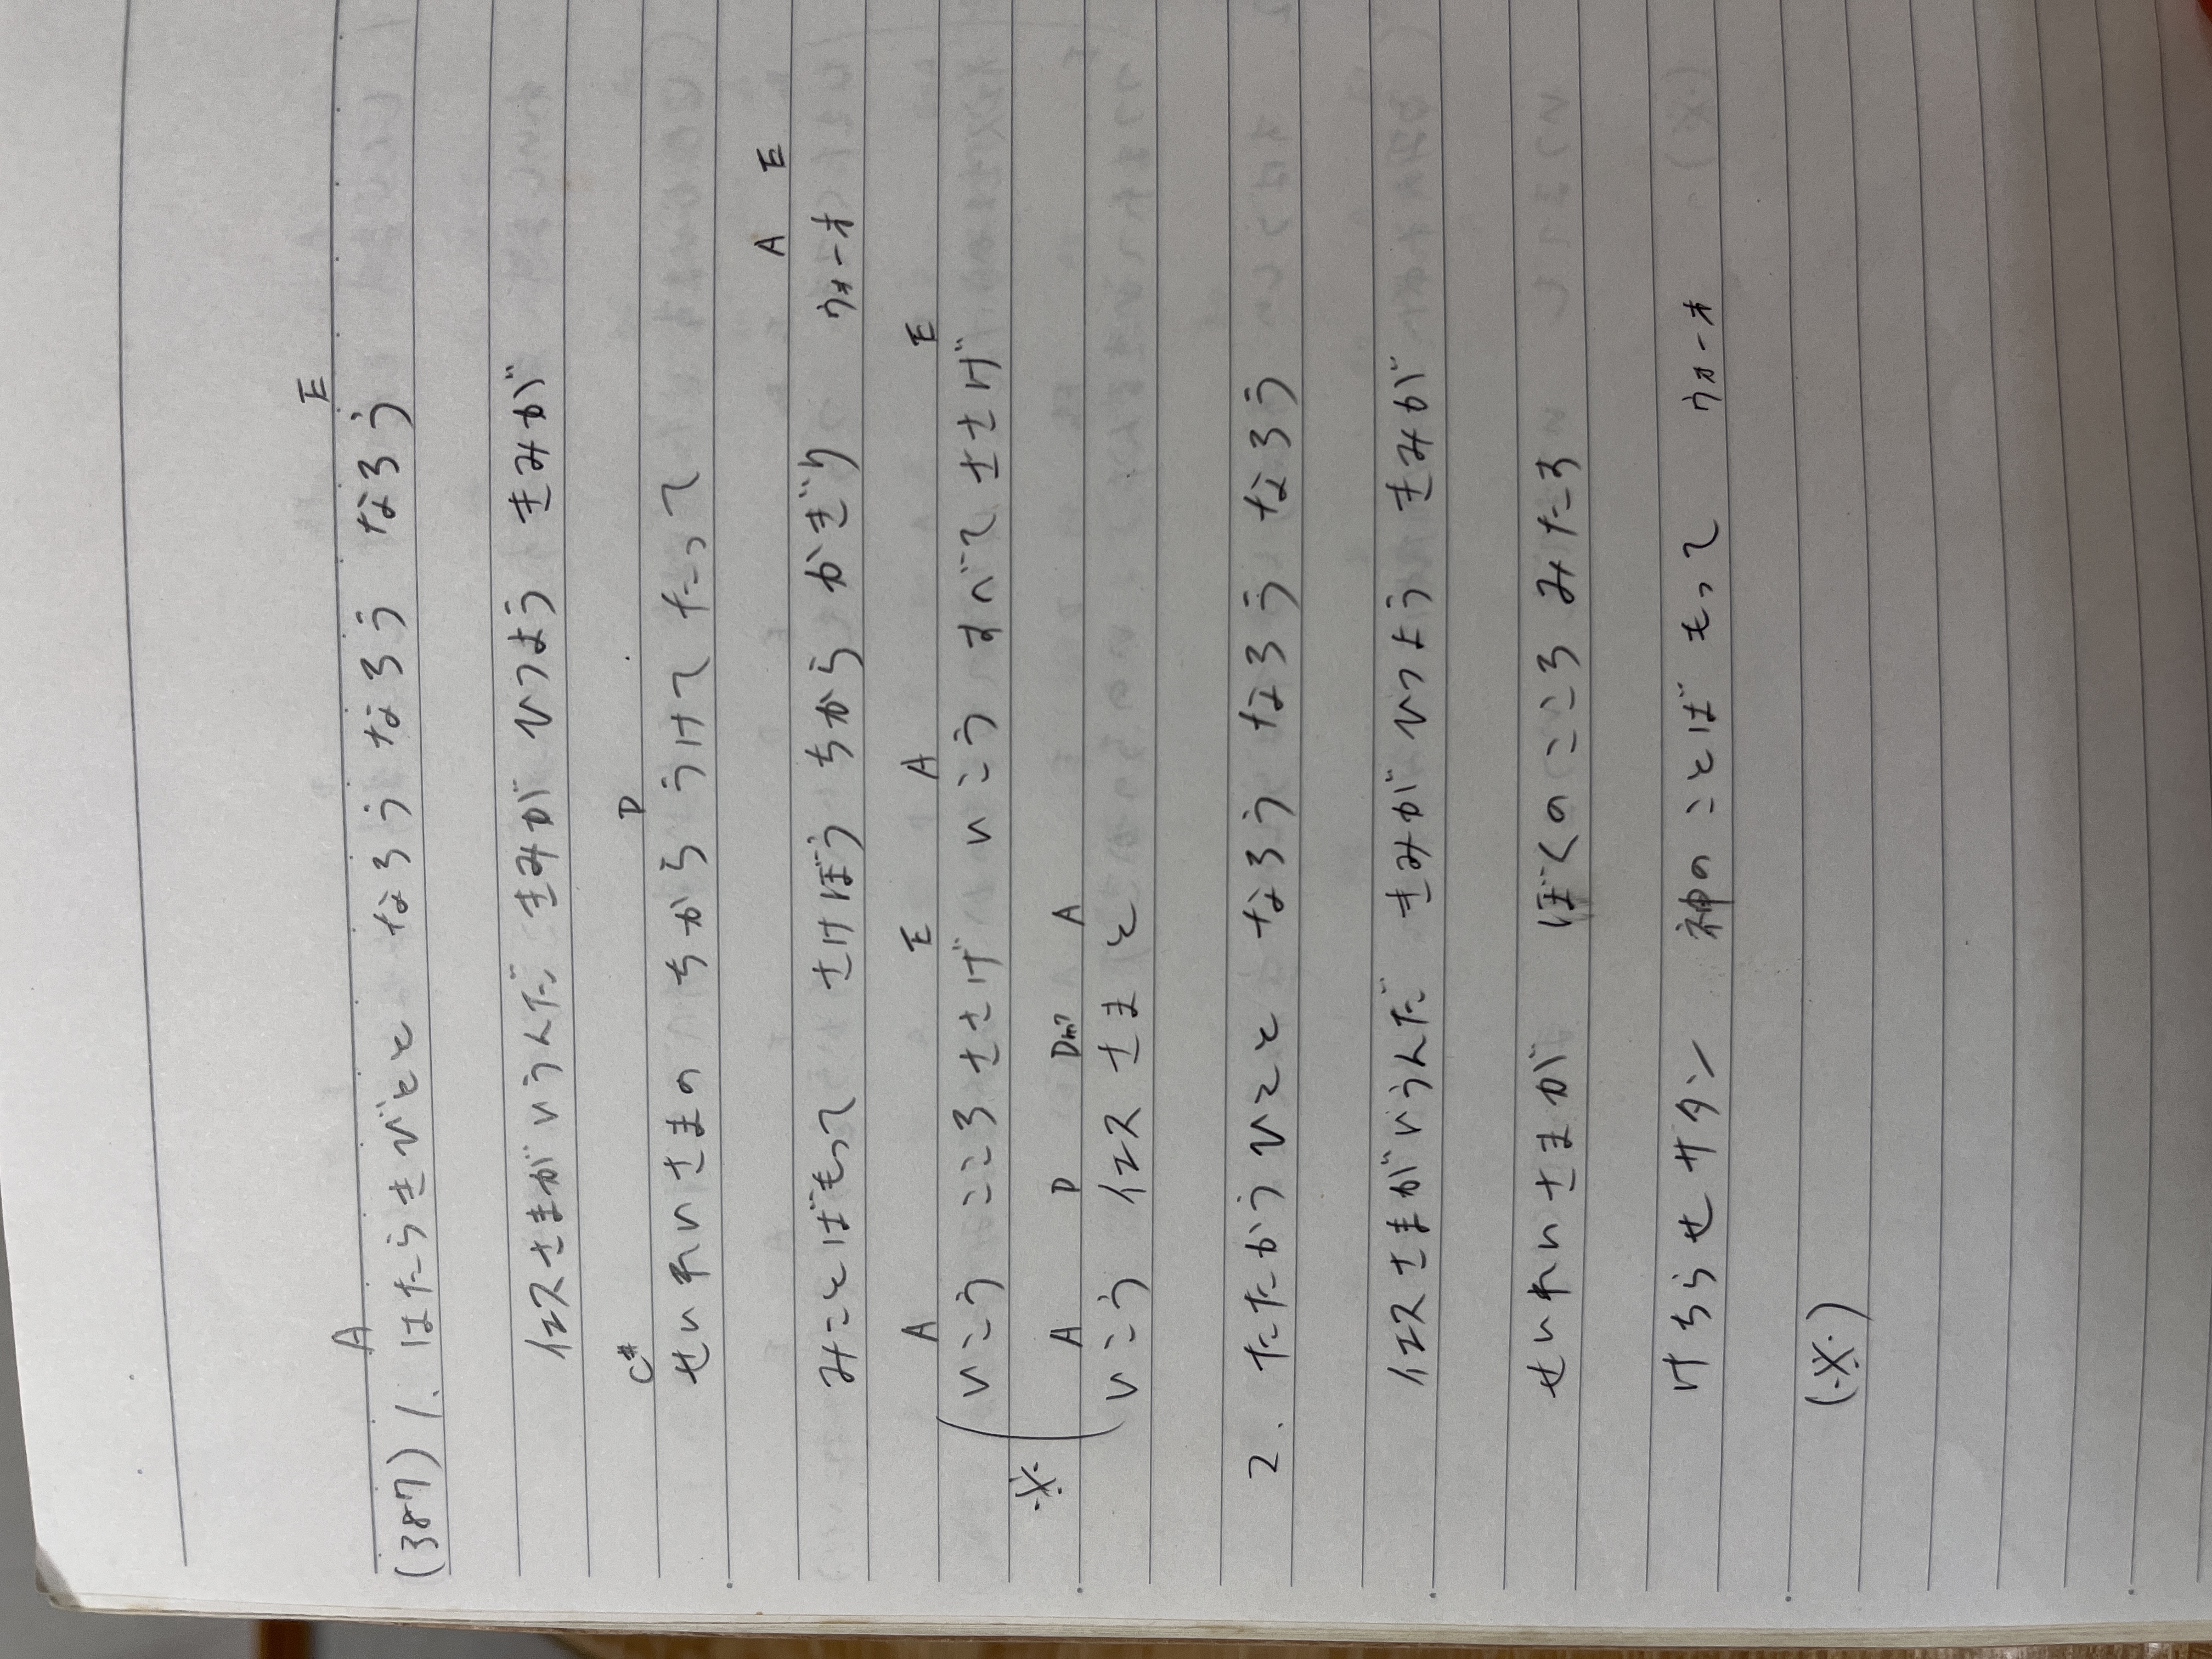 A E
(387) 1. はたらきびとと なろう なろう なろう
イエスさまがいうんだ きみが ひつよう きみが
C# D
せいれいさまの ちから うけて たって
A E
みことばもって さけぼう ちから かぎり ウォーオ
A E A E
いこう こころ ささげ いこう すべて ささげ
※ A D Dm7 A
いこう イエス さまと
2. たたかうひとと なろう なろう なろう
イエスさまがいうんだ きみが ひつよう きみが
せいれいさまが ぼくの こころ みたす
けちらせ サタン 神の ことば もって ウォーオ
(※)